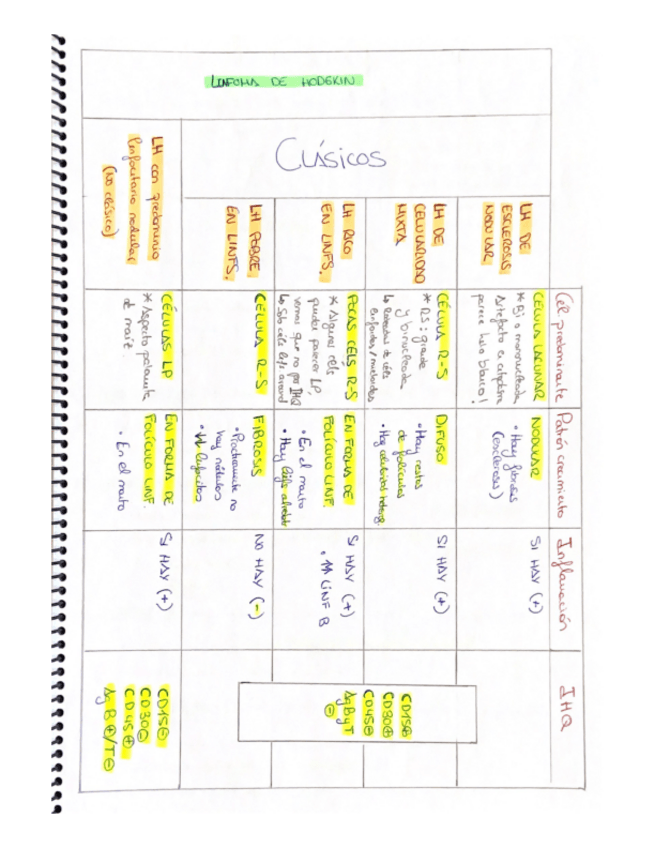 LINFOMA DE HODGKIN
Clásicos
Cél predominante
Patrón crecimiento
Inflamación
IHQ
LH DE
ESCLEROSIS
NODULAR
CÉLULA LACUNAR
* Bi o mononucleada
Artefacto
parece halo blanco!
NODULAR
• Hay fibrosis
(esclerosis)
SI HAY (+)
LH DE
CELULARIDAD
MIXTA
CÉLULA R-S
* RS: grande
y binucleada
DIFUSO
• Hay restos
de folículos
• Hay
SI HAY (+)
LH RICO
EN LINFS.
POCAS CÉLS R-S
* Algunas céls
pueden parecer LP,
vemos que no por IHQ
EN FORMA DE
FOLÍCULO LINF.
• En el manto
• Hay linfs alrededor
SI HAY (+)
• ↑↑ LINF B
LH POBRE
EN LINFS.
CÉLULA R-S
FIBROSIS
• Prácticamente no
hay nódulos
• ↓↓ linfocitos
NO HAY (-)
CD15⊕
CD30⊕
CD45⊖
Ag B y T
⊖
LH con predominio
linfocitario nodular
(no clásico)
CÉLULAS LP
* Aspecto palomita
de maíz.
EN FORMA DE
FOLÍCULO LINF.
• En el manto
SI HAY (+)
CD15⊖
CD30⊖
CD45⊕
Ag B⊕/T⊖